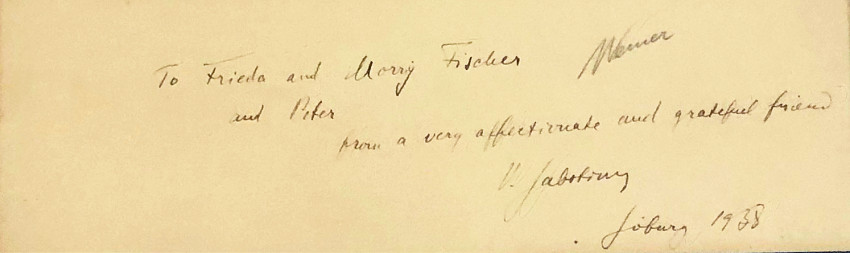 To Frieda and Morris Fischer
and Peter
from a very affectionate and grateful friend
V. Jabotinsky
Joburg 1938